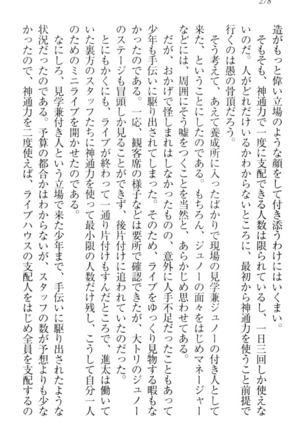 278
造がもっと偉い立場のような顔をして付き添うわけにはいくまい。
そもそも、神通力で一度に支配できる人数は限られているらし
いのだ。人がどれだけいるかわからないところに、一日三回しか使えな
いのに行くのは愚の骨頂だろう。最初から神通力を使うこと前提で
そう考えて、あえて養成所に入ったばかりで現場の見学兼ジュノーの付き人として
来た、ということにしたのである。もちろん、ジュノーの面々をはじめマネージャー
などには、周囲にそう嘘をつくことを当然と、あらかじめ思わせてある。
だが、おかげで怪しまれはしなかったものの、意外に人手不足だったこともあって
少年も手伝いに駆り出されてしまった。そのため、ライブをゆっくり見物する暇もな
かったのである。一応、観客席の様子などは要所で確認できたが、大トリのジュノー
のステージも冒頭しか見ることができず、後片付けに追われていたのだった。
ともかくにも、ライブが終わって後片付けもすんだところで、進太は働いて
いた裏方のスタッフたちに神通力を使って最小限の人数だけ残し、こうして自分一人
のためのミニライブを開かせたのである。
なにしろ、見学兼付き人という立場で来た少年まで、手伝いに駆り出されたような
状況だったのである。予算の都合かはわからないが、スタッフの数が予想よりも少な
かったので、神通力を二度使えば、ライブハウスの支配人をはじめ全員を支配するの